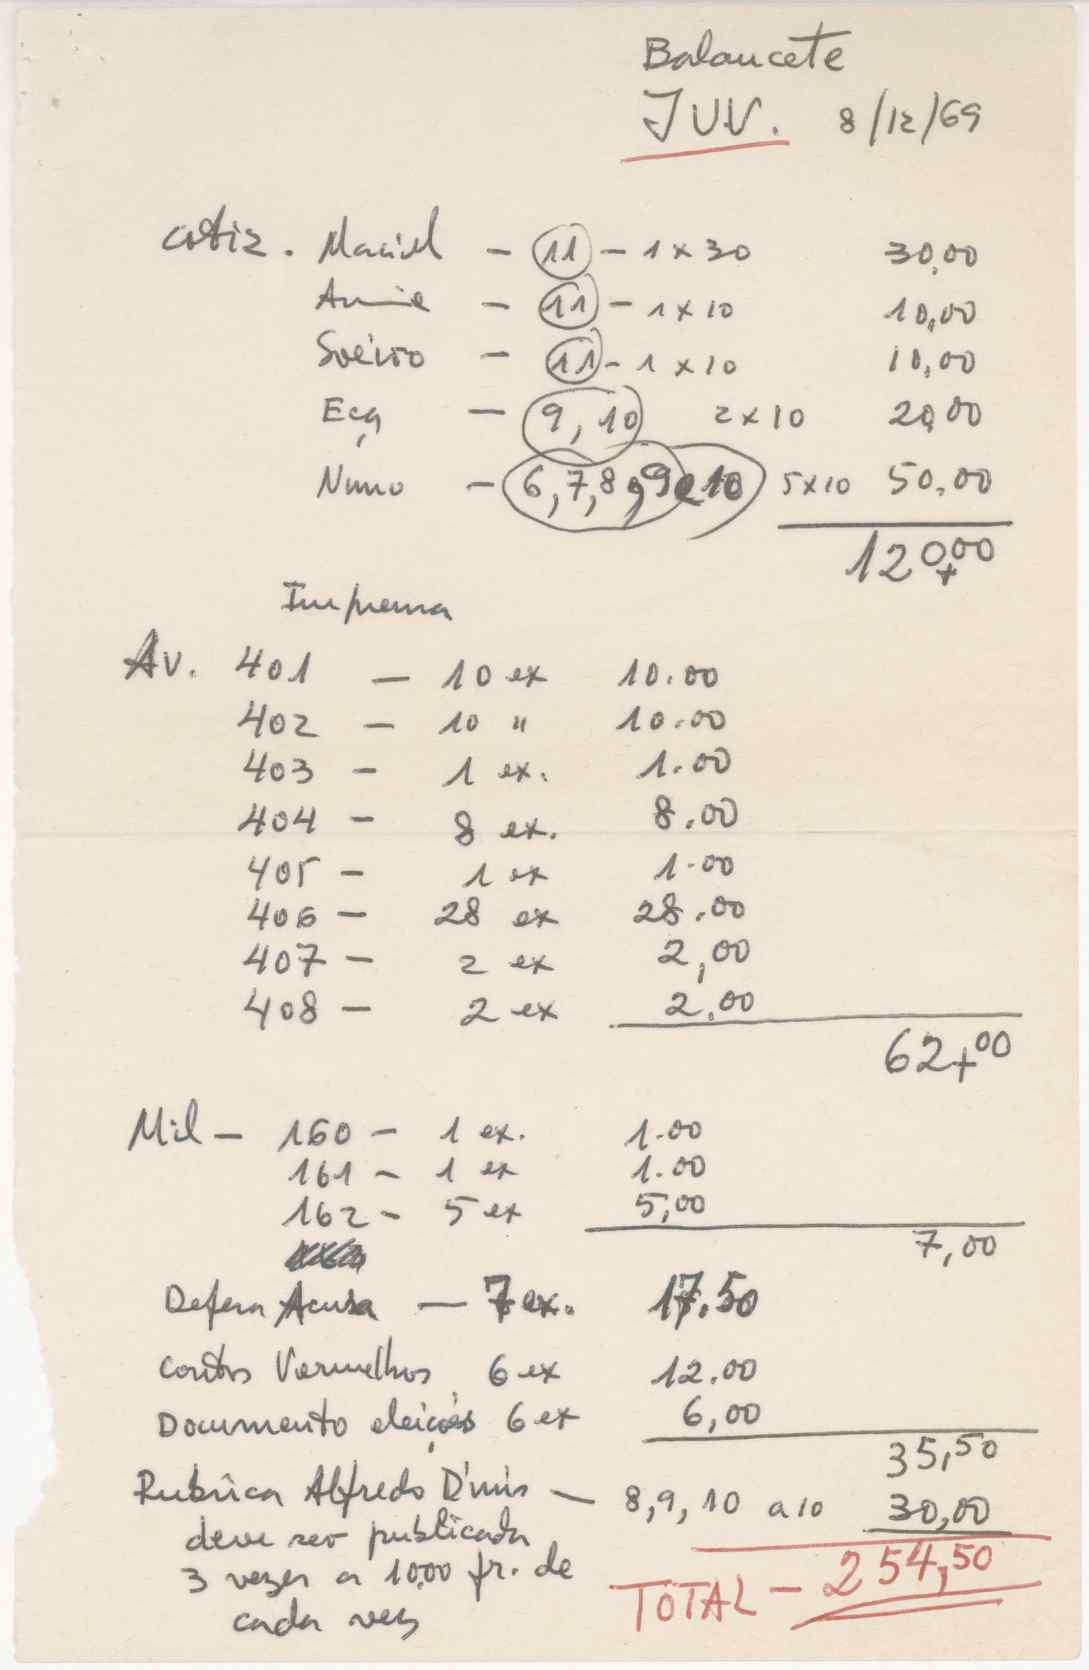 Balancete
JUV. 8/12/69
cotiz. Maciel - 11 - 1 x 30 30,00
Annie - 11 - 1 x 10 10,00
Soeiro - 11 - 1 x 10 10,00
Eça - 9, 10 2 x 10 20,00
Nuno - 6, 7, 8, 9 e 10 5 x 10 50,00
120,00
Imprensa
Av. 401 - 10 ex 10.00
402 - 10 " 10.00
403 - 1 ex. 1.00
404 - 8 ex. 8.00
405 - 1 ex 1.00
406 - 28 ex 28.00
407 - 2 ex 2,00
408 - 2 ex 2,00
62,00
Mil - 160 - 1 ex. 1.00
161 - 1 ex 1.00
162 - 5 ex 5,00
7,00
Defesa Acusa - 7 ex. 17.50
Contos Vermelhos 6 ex 12.00
Documento eleições 6 ex 6,00
35,50
Rubrica Alfredo Dinis - 8, 9, 10 a 10 30,00
deve ser publicada
3 vezes a 10,00 fr. de
cada vez
TOTAL - 254,50